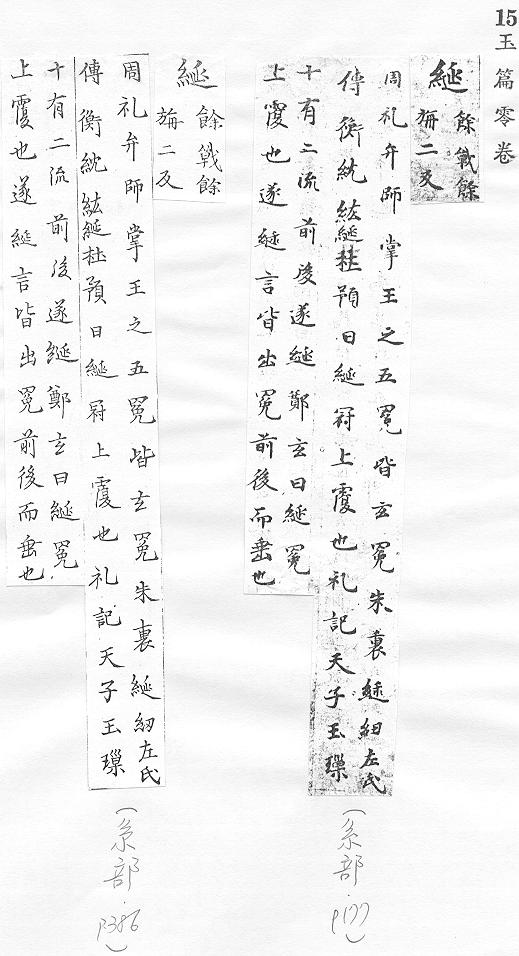 15 玉篇零卷
綖 餘戰餘
旃二反
周礼弁師掌王之五冕皆玄冕朱裏綖紐左氏
傳衡紞紘綖杜預曰綖冠上覆也礼記天子玉璪
十有二流前後遂綖鄭玄曰綖冕
上覆也遂綖言皆出冕前後而垂也
(糸部.P177)
綖 餘戰餘
旃二反
周礼弁師掌王之五冕皆玄冕朱裏綖紉左氏
傳衡紞紘綖杜預曰綖冠上覆也礼記天子玉璪
十有二流前後遂綖鄭玄曰綖冕
上覆也遂綖言皆出冕前後而垂也
(糸部.P386)